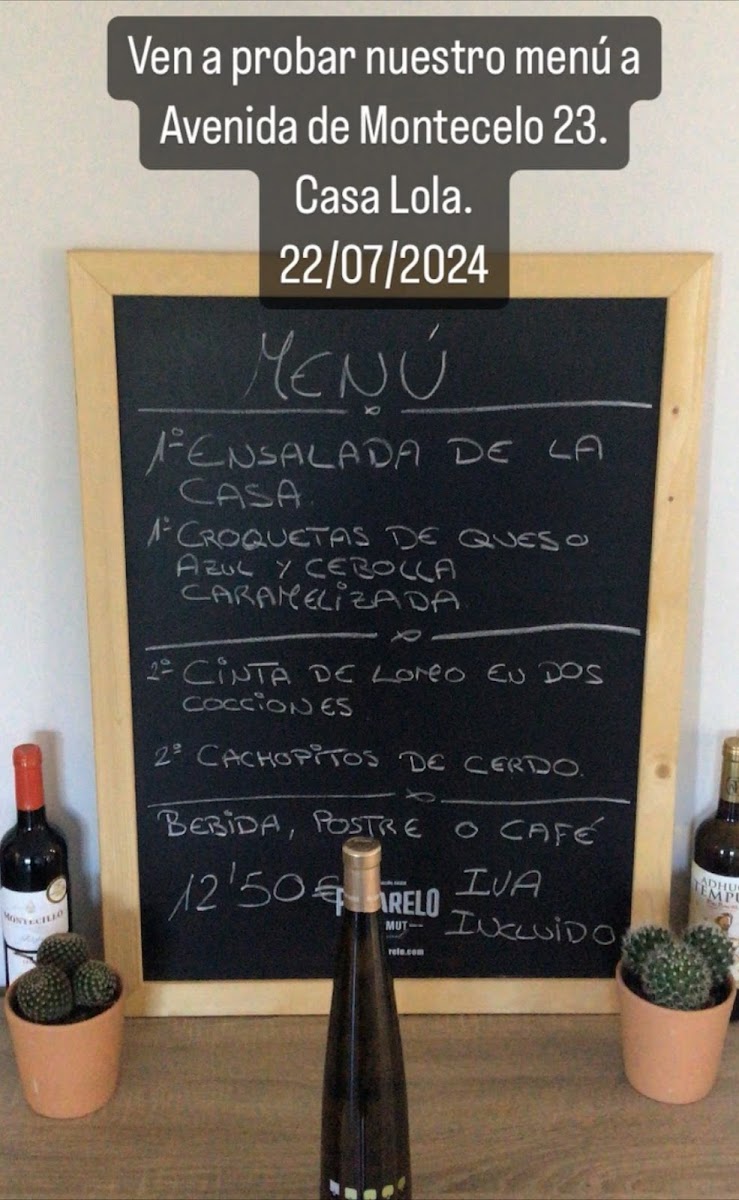 Ven a probar nuestro menú a
Avenida de Montecelo 23.
Casa Lola.
22/07/2024
MENÚ
1º ENSALADA DE LA
CASA.
1º CROQUETAS DE QUESO
AZUL Y CEBOLLA
CARAMELIZADA
2º CINTA DE LOMO EN DOS
COCCIONES
2º CACHOPITOS DE CERDO.
BEBIDA, POSTRE O CAFÉ
12'50€ IVA
INCLUIDO
MONTECILLO